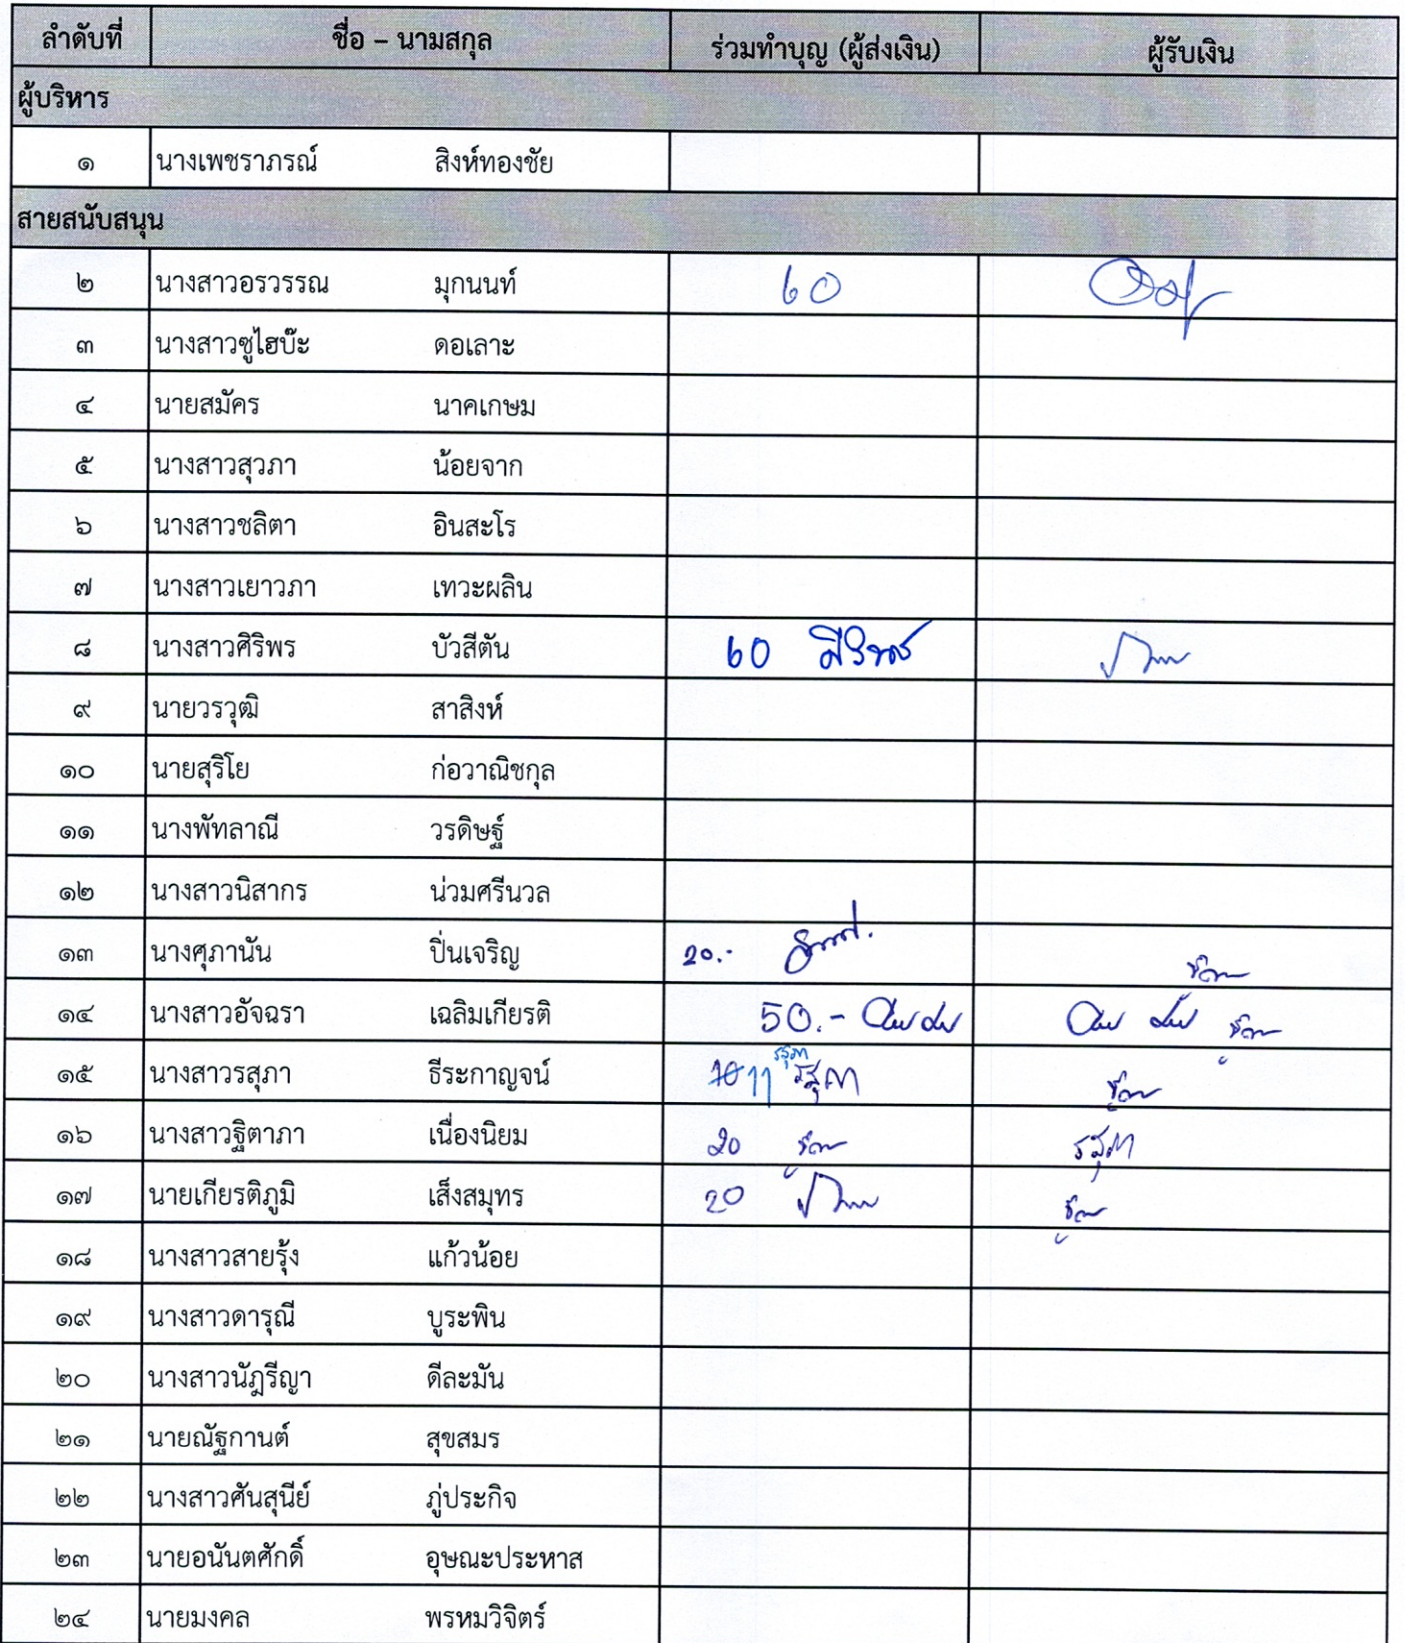 ลำดับที่ ชื่อ – นามสกุล ร่วมทำบุญ (ผู้ส่งเงิน) ผู้รับเงิน
ผู้บริหาร
๑ นางเพชราภรณ์ สิงห์ทองชัย
สายสนับสนุน
๒ นางสาวอรวรรณ มุกนนท์ 60
๓ นางสาวซูไฮบ๊ะ ดอเลาะ
๔ นายสมัคร นาคเกษม
๕ นางสาวสุวภา น้อยจาก
๖ นางสาวชลิตา อินสะโร
๗ นางสาวเยาวภา เทวะผลิน
๘ นางสาวศิริพร บัวสีตัน 60
๙ นายวรวุฒิ สาสิงห์
๑๐ นายสุริโย ก่อวาณิชกุล
๑๑ นางพัทลาณี วรดิษฐ์
๑๒ นางสาวนิสากร น่วมศรีนวล
๑๓ นางศุภานัน ปิ่นเจริญ 20.-
๑๔ นางสาวอัจฉรา เฉลิมเกียรติ 50.-
๑๕ นางสาวรสุภา ธีระกาญจน์ 11 รสุภา รสุภา
๑๖ นางสาวฐิตาภา เนื่องนิยม 20 รสุภา
๑๗ นายเกียรติภูมิ เส็งสมุทร 20
๑๘ นางสาวสายรุ้ง แก้วน้อย
๑๙ นางสาวดารุณี บูระพิน
๒๐ นางสาวนัฏรีญา ดีละมัน
๒๑ นายณัฐกานต์ สุขสมร
๒๒ นางสาวศันสุนีย์ ภู่ประกิจ
๒๓ นายอนันตศักดิ์ อุษณะประหาส
๒๔ นายมงคล พรหมวิจิตร์